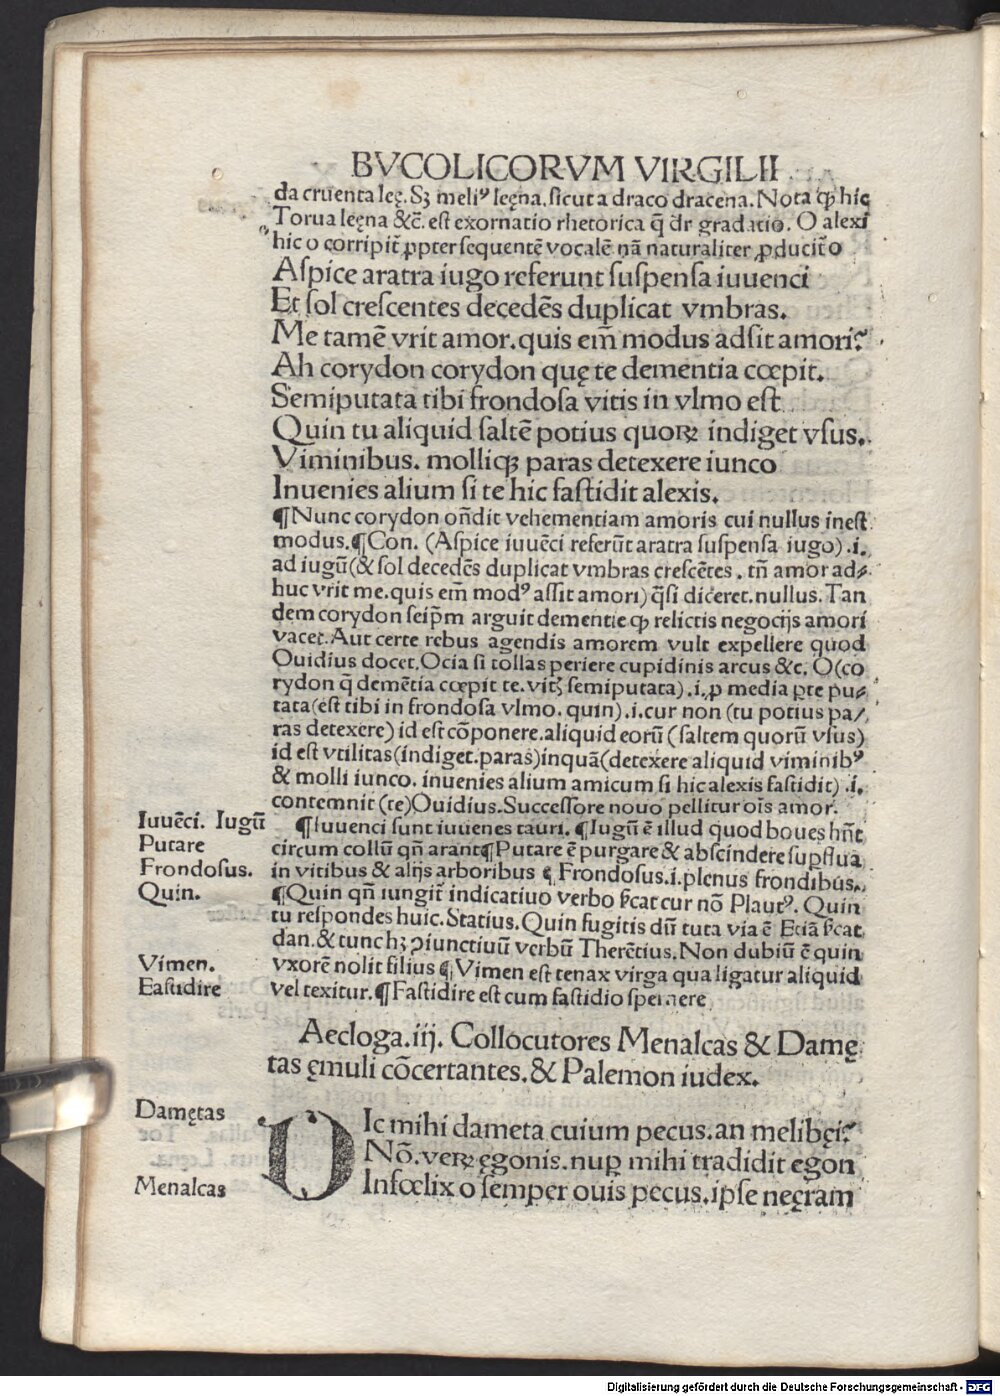 BVCOLICORVM VIRGILII
da cruenta leę. Sꝫ meliꝰ leęna. sicut a draco dracena. Nota ꝙ hic
Torua leęna &c̄. est exornatio rhetorica q̄ dr̄ gradatio. O alexi
hic o corripit̄ ꝓpter sequentē vocalē nā naturaliter ꝓducit̄ o
Aſpice aratra iugo referunt ſuſpenſa iuuenci
Et ſol creſcentes decedēs duplicat vmbras.
Me tamē vrit amor. quis em̄ modus adſit amori?
Ah corydon corydon quę te dementia cœpit.
Semiputata tibi frondoſa vitis in vlmo eſt
Quin tu aliquid ſaltē potius quoꝝ indiget vſus.
Viminibus. molliqꝫ paras detexere iunco
Inuenies alium ſi te hic faſtidit alexis.
¶Nunc corydon on̄dit vehementiam amoris cui nullus ineſt
modus. ¶Con. (Aſpice iuuēci referūt aratra ſuſpenſa iugo) .i.
ad iugū(& ſol decedēs duplicat vmbras creſcētes. tn̄ amor ad⸗
huc vrit me. quis em̄ modꝰ aſſit amori) q̄ſi diceret. nullus. Tan
dem corydon ſeip̄m arguit dementie ꝙ relictis negocijs amori
vacet. Aut certe rebus agendis amorem vult expellere quod
Ouidius docet. Ocia ſi tollas periere cupidinis arcus &c. O(co
rydon q̄ demētia cœpit te. vitꝫ ſemiputata) .i. ꝑ media ꝑte pu⸗
tata(eſt tibi in frondoſa vlmo. quin) .i. cur non (tu potius pa/
ras detexere) id eſt cōponere. aliquid eorū (ſaltem quorū vſus)
id eſt vtilitas(indiget. paras)inquā(detexere aliquid viminibꝰ
& molli iunco. inuenies alium amicum ſi hic alexis faſtidit) .i.
contemnit (te)Ouidius. Succeſſore nouo pellitur oīs amor.
Iuuēci. Iugū
¶Iuuenci ſunt iuuenes tauri. ¶Iugū ē illud quod boues hn̄t
Putare
circum collū qn̄ arant¶Putare ē purgare & abſcindere ſuꝑflua
Frondoſus.
in vitibus & alijs arboribus ¶ Frondoſus .i. plenus frondibus.
Quin.
¶Quin qn̄ iungit̄ indicatiuo verbo p̄cat cur nō Plautꝰ. Quin
tu reſpondes huic. Statius. Quin fugitis dū tuta via ē Etiā p̄cat
dan. & tunc hꝫ ꝯiunctiuū verbū Therētius. Non dubiū ē quin
Vimen.
vxorē nolit filius ¶ Vimen eſt tenax virga qua ligatur aliquid
Faſtidire
vel texitur. ¶Faſtidire eſt cum faſtidio ſpernere
Aecloga .iij. Collocutores Menalcas & Damę
tas ęmuli cōcertantes. & Palemon iudex.
Damętas
DIc mihi dameta cuium pecus. an melibęi?
Nō. veꝝ ęgonis. nuꝑ mihi tradidit egon
Menalcas
Infœlix o ſemper ouis pecus. ipſe neęram
Digitalisierung gefördert durch die Deutsche Forschungsgemeinschaft - DFG